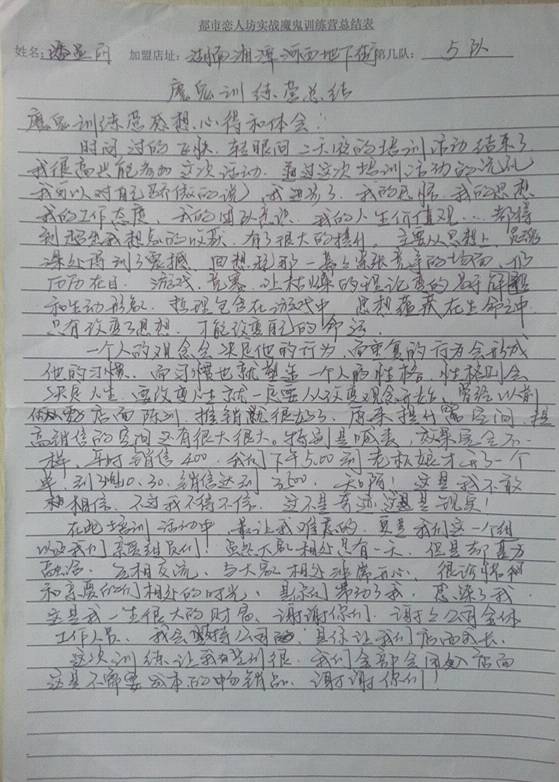 都市恋人坊实战魔鬼训练营总结表
姓名: 加盟店址: 湖南湘潭河西地下街 第几队: 5队
魔鬼训练营总结
魔鬼训练营感想、心得和体会:
时间过的飞快、转眼间二天夜的培训活动结束了
我很高兴能参加这次活动、通过这次培训活动的洗礼
我可以对自己骄傲的说, 我进步了、我的心态、我的思想
我的工作态度、我的团队意识、我的人生价值观……都得
到超出我想象的收获、有了很大的提升、主要从思想上、灵魂
深处得到了震撼、回想起那一幕幕紧张竞争的场面、仍
历历在目、游戏、竞赛、让枯燥的理论变的易解
和生动形象、哲理包含在游戏中、思想蕴藏在生命之中
只有改变了思想、才能改变自己的命运、
一个人的观念会决定他的行为、而重复的行为会形成
他的习惯、而习惯也就塑造一个人的性格、性格则会
决定人生、要改变人生就一定要从改变观念开始、以前
店面陈列、推销就很好了、原来提升空间、提
高销售的空间还有很大很大。特别是喊麦、效果完全不一
样、平时销售400、我们下午5:00到老板娘才开了一个
单、到10:30、销售达到3500、天啊! 这是我不敢
相信、不过我不得不信、这不是奇迹, 这是现实!
在此培训活动中、最让我难忘的、莫是我们这一个组
以及我们亲爱组员们! 虽然大家相处只有一天、但是却
融洽、互相交流、与大家相处非常开心、很珍惜和
和亲爱的们相处的时光、是你们带动了我、感染了我、
这是我一生很大的财富、谢谢你们、谢谢公司全体
工作人员、我会支持公司的、是你让我们店面成长、
这次训练让我受到很、我们全部会用如店面
这是不需要成本的中销品、谢谢你们!